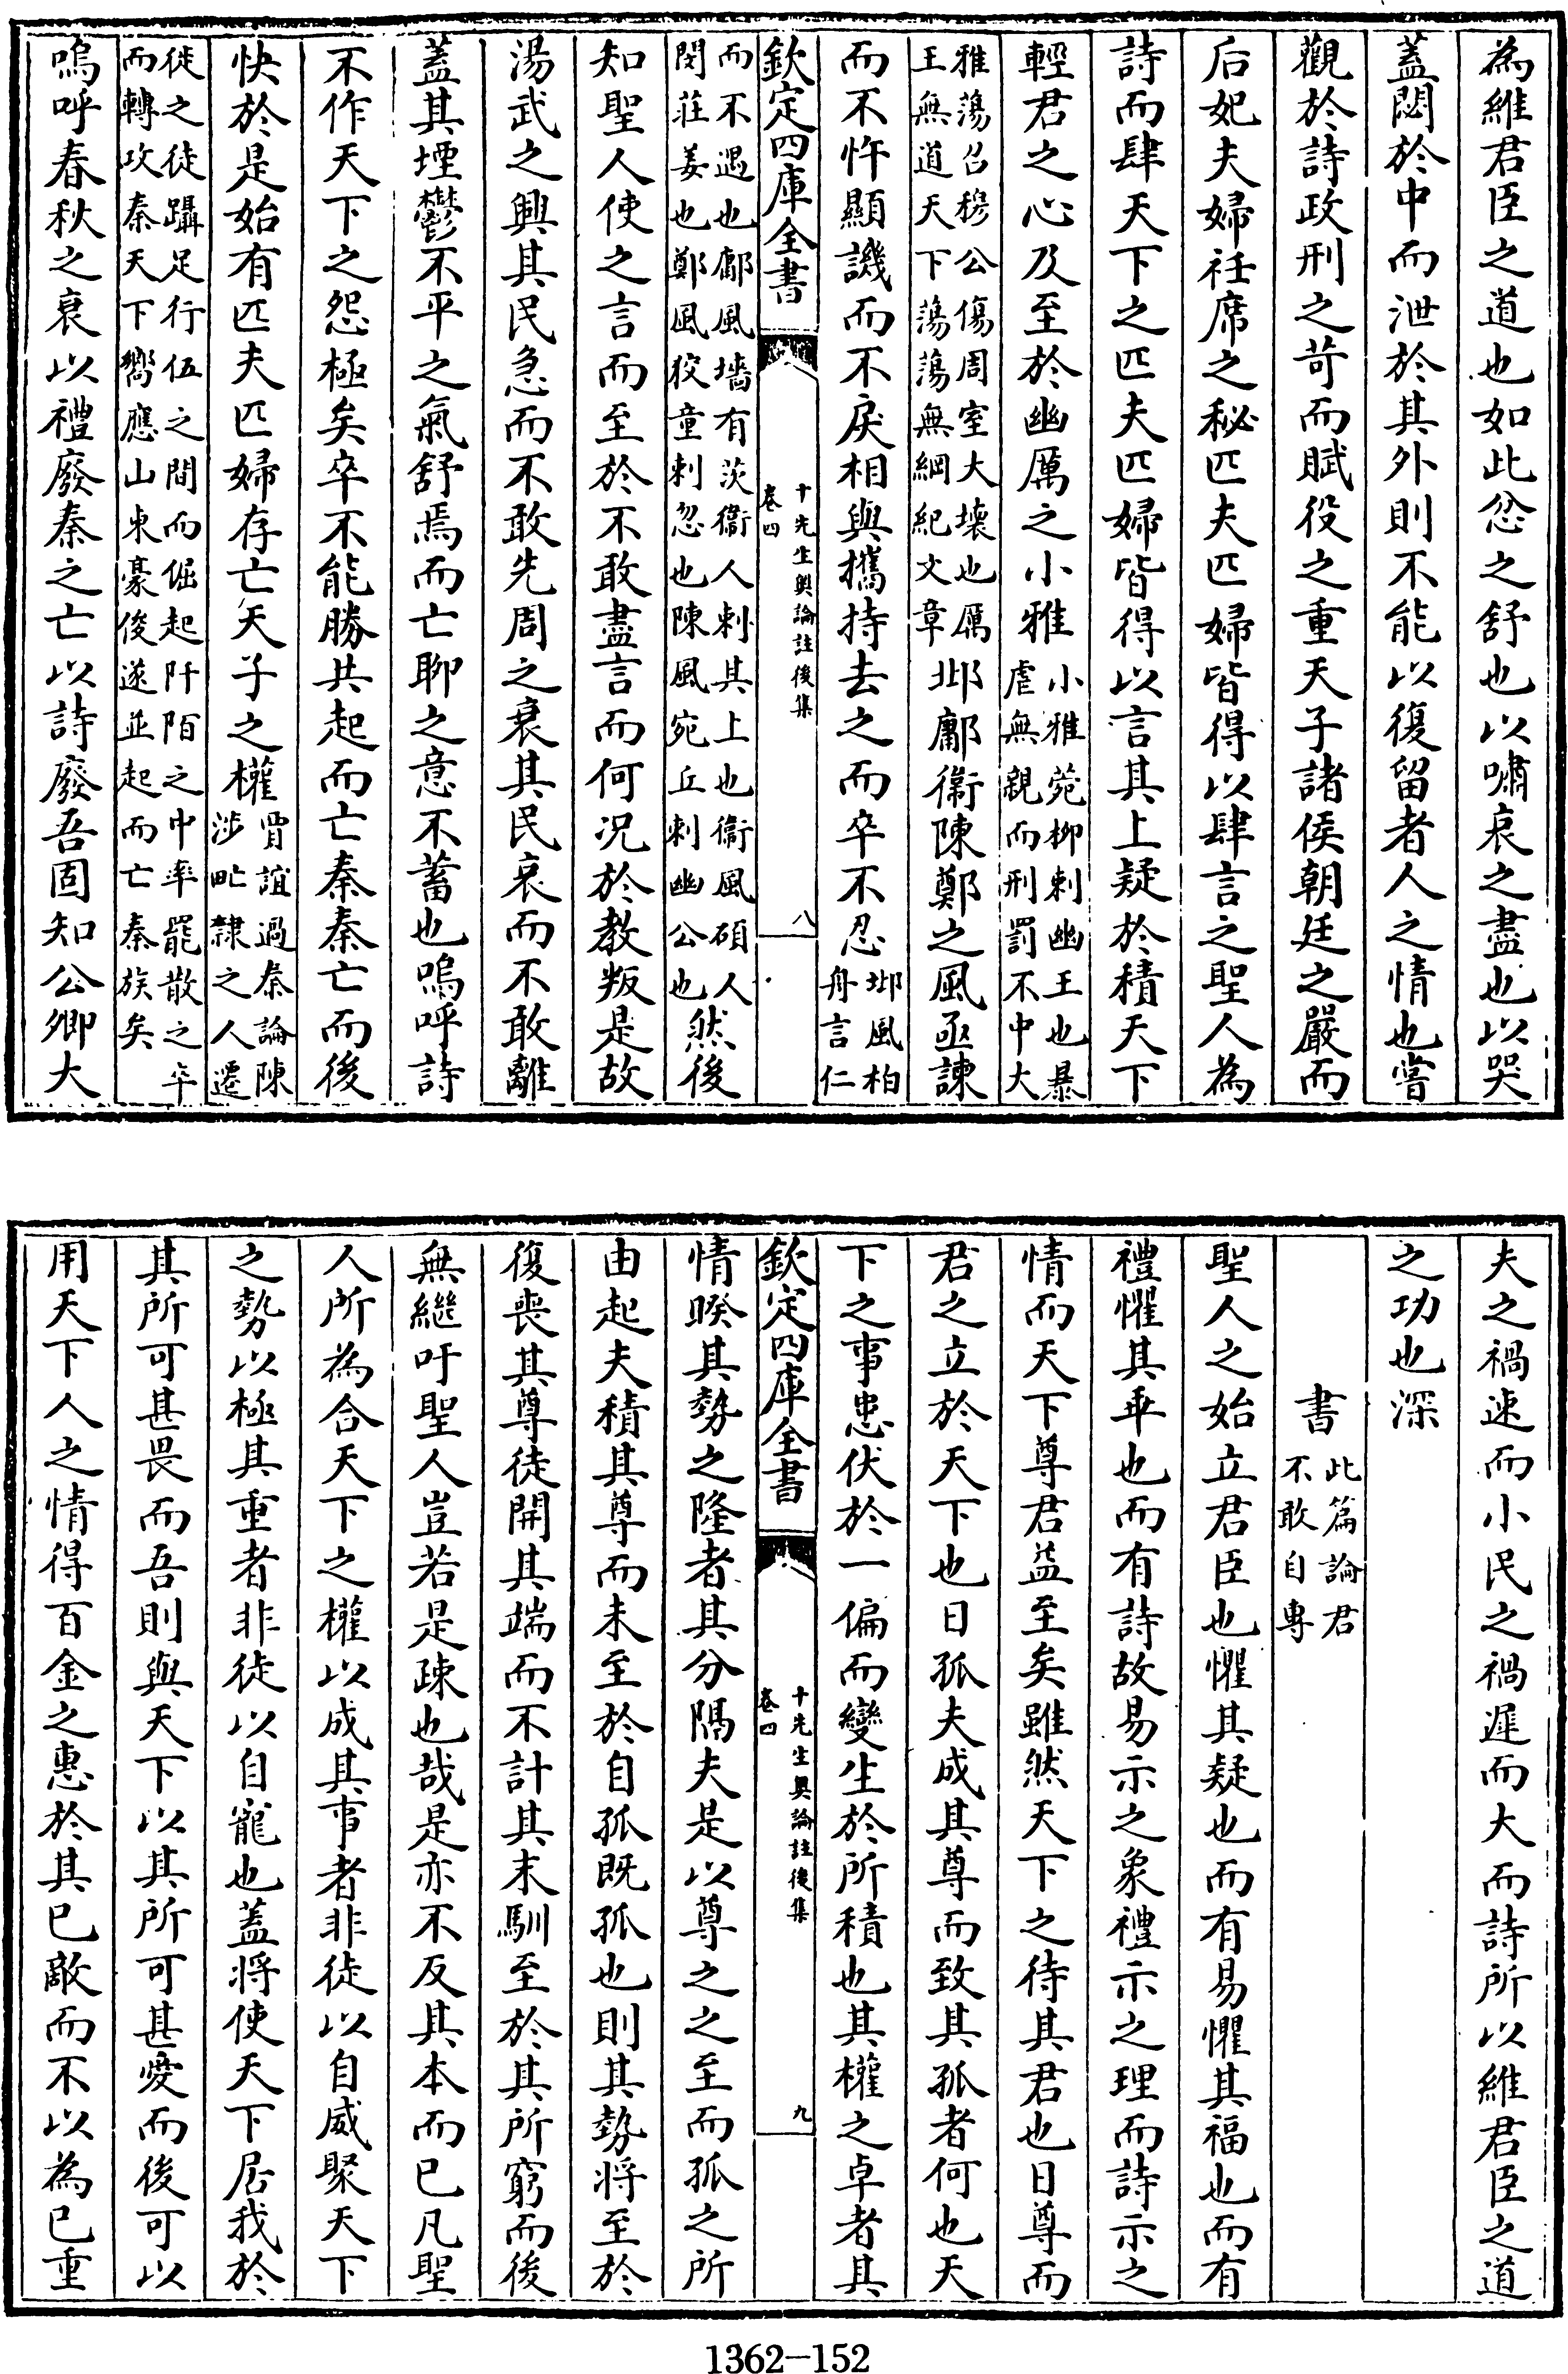 為維君臣之道也如此忿之舒也以嘯哀之盡也以哭
蓋悶於中而泄於其外則不能以復留者人之情也嘗
觀於詩政刑之苛而賦役之重天子諸侯朝廷之嚴而
后妃夫婦袵席之秘匹夫匹婦皆得以肆言之聖人為
詩而肆天下之匹夫匹婦皆得以言其上疑於積天下
輕君之心及至於幽厲之小雅小雅菀柳刺幽王也暴虐無親而刑罰不中大
雅蕩召穆公傷周室大壊也厲王無道天下蕩蕩無綱紀文章邶鄘衞陳鄭之風亟諫
而不忤顯譏而不戾相與攜持去之而卒不忍邶風柏舟言仁
欽定四庫全書
十先生奥論註後集
卷四
八
而不遇也鄘風墻有茨衞人刺其上也衞風碩人閔莊姜也鄭風狡童刺忽也陳風宛丘刺幽公也然後
知聖人使之言而至於不敢盡言而何况於教叛是故
湯武之興其民急而不敢先周之衰其民哀而不敢離
蓋其堙鬱不平之氣舒焉而亡聊之意不蓄也嗚呼詩
不作天下之怨極矣卒不能勝共起而亡秦秦亡而後
快於是始有匹夫匹婦存亡天子之權賈誼過秦論陳涉甿隸之人遷
徙之徒躡足行伍之間而倔起阡陌之中率罷散之卒而轉攻秦天下嚮應山東豪俊遂並起而亡秦族矣
嗚呼春秋之衰以禮廢秦之亡以詩廢吾固知公卿大
夫之禍速而小民之禍遲而大而詩所以維君臣之道
之功也深
書此篇論君不敢自專
聖人之始立君臣也懼其疑也而有易懼其福也而有
禮懼其乖也而有詩故易示之象禮示之理而詩示之
情而天下尊君益至矣雖然天下之待其君也日尊而
君之立於天下也日孤夫成其尊而致其孤者何也天
下之事患伏於一偏而變生於所積也其權之卓者其
欽定四庫全書
十先生奥論註後集
卷四
九
情暌其勢之隆者其分隔夫是以尊之之至而孤之所
由起夫積其尊而未至於自孤既孤也則其勢將至於
復喪其尊徒開其端而不計其末馴至於其所窮而後
無繼吁聖人豈若是疎也哉是亦不反其本而已凡聖
人所為合天下之權以成其事者非徒以自威聚天下
之勢以極其重者非徒以自寵也蓋將使天下居我於
其所可甚畏而吾則與天下以其所可甚愛而後可以
用天下人之情得百金之惠於其已敵而不以為已重
1362-152